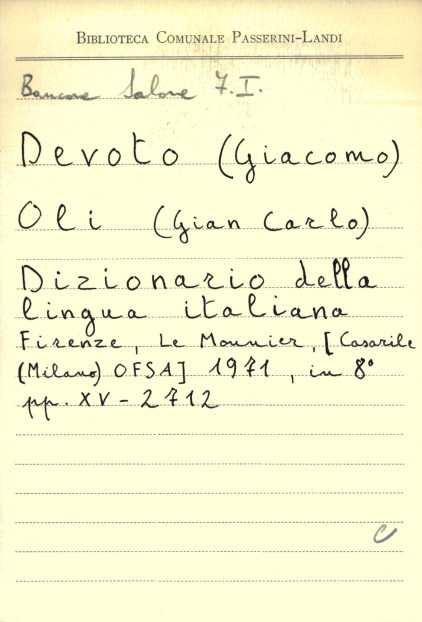 BIBLIOTECA COMUNALE PASSERINI-LANDI
Bancone Salone 7.I.
Devoto (Giacomo)
Oli (Gian Carlo)
Dizionario della
lingua italiana
Firenze, Le Monnier, [Casarile
(Milano) OFSA] 1971, in 8°
pp. XV-2712
C